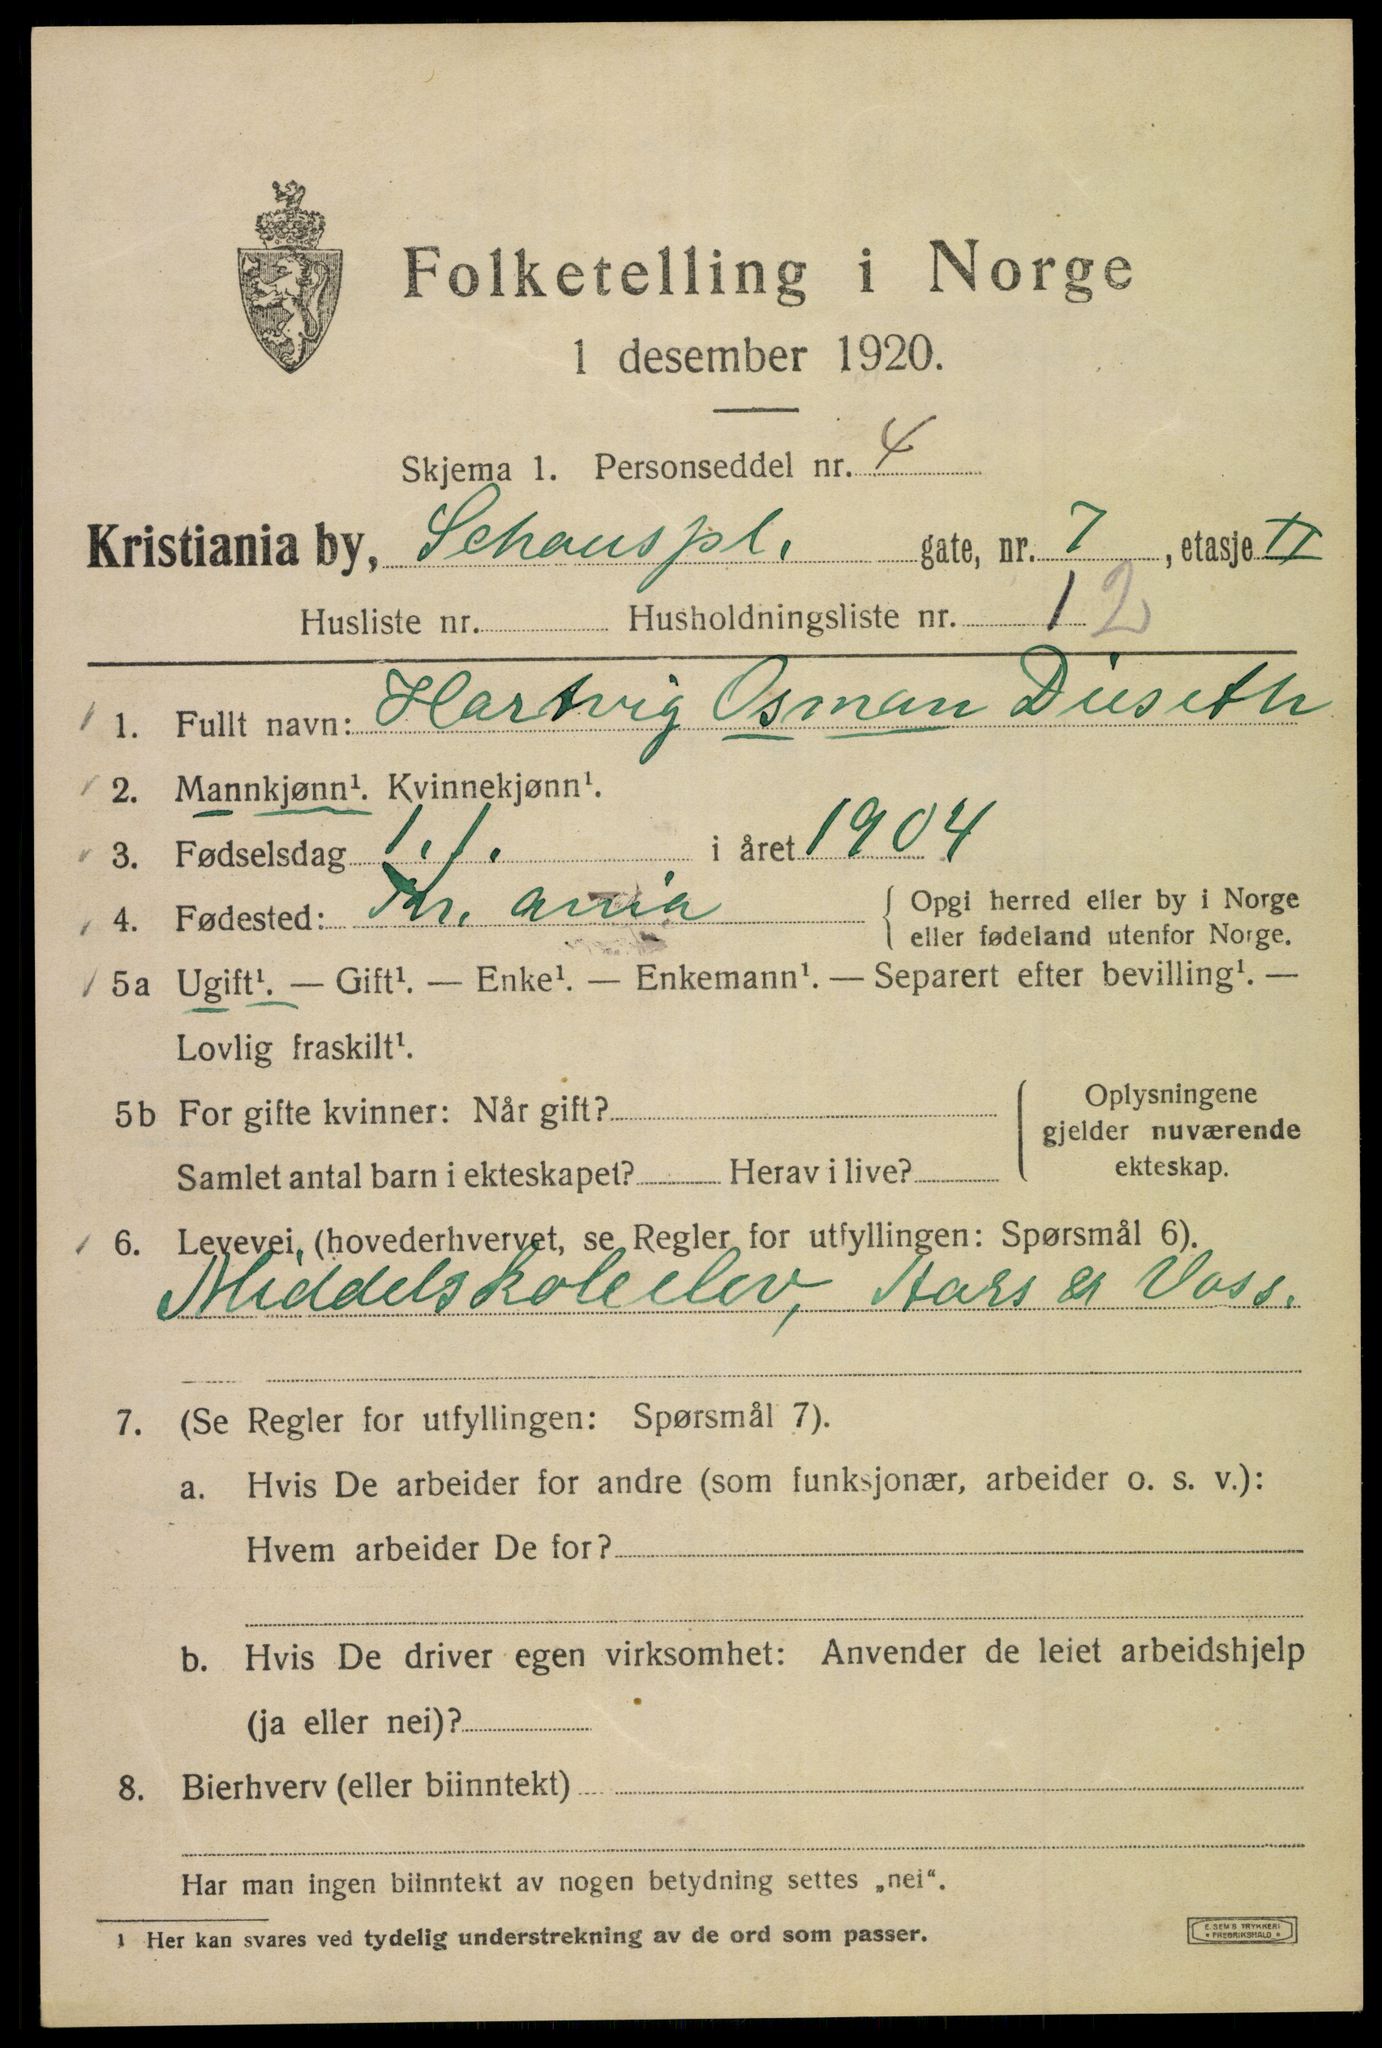 Folketelling i Norge
1 desember 1920.
Skjema 1. Personseddel nr. 4
Kristiania by, Schouspl. gate, nr. 7, etasje II
Husliste nr. Husholdningsliste nr. 12
1. Fullt navn: Hartvig Osman Diseth
2. Mannkjønn¹. Kvinnekjønn¹.
3. Fødselsdag 1.1. i året 1904
4. Fødested: Kr. ania { Opgi herred eller by i Norge
eller fødeland utenfor Norge.
5a Ugift¹. — Gift¹. — Enke¹. — Enkemann¹. — Separert efter bevilling¹. —
Lovlig fraskilt¹.
5b For gifte kvinner: Når gift? { Oplysningene
gjelder nuværende
ekteskap.
Samlet antal barn i ekteskapet? Herav i live?
6. Levevei, (hovederhvervet, se Regler for utfyllingen: Spørsmål 6).
Middelskoleelev, Aars & Voss.
7. (Se Regler for utfyllingen: Spørsmål 7).
a. Hvis De arbeider for andre (som funksjonær, arbeider o. s. v.):
Hvem arbeider De for?
b. Hvis De driver egen virksomhet: Anvender de leiet arbeidshjelp
(ja eller nei)?
8. Bierhverv (eller biinntekt)
Har man ingen biinntekt av nogen betydning settes „nei“.
1 Her kan svares ved tydelig understrekning av de ord som passer.
E. SEM'S TRYKKERI
* FREDRIKSHALD *